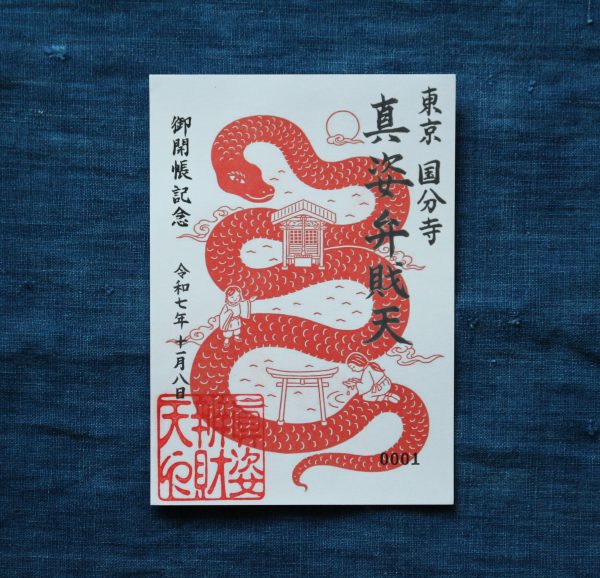 東京 国分寺
真姿弁財天
御開帳記念
令和七年 十一月八日
真姿
辨財
天印
0001